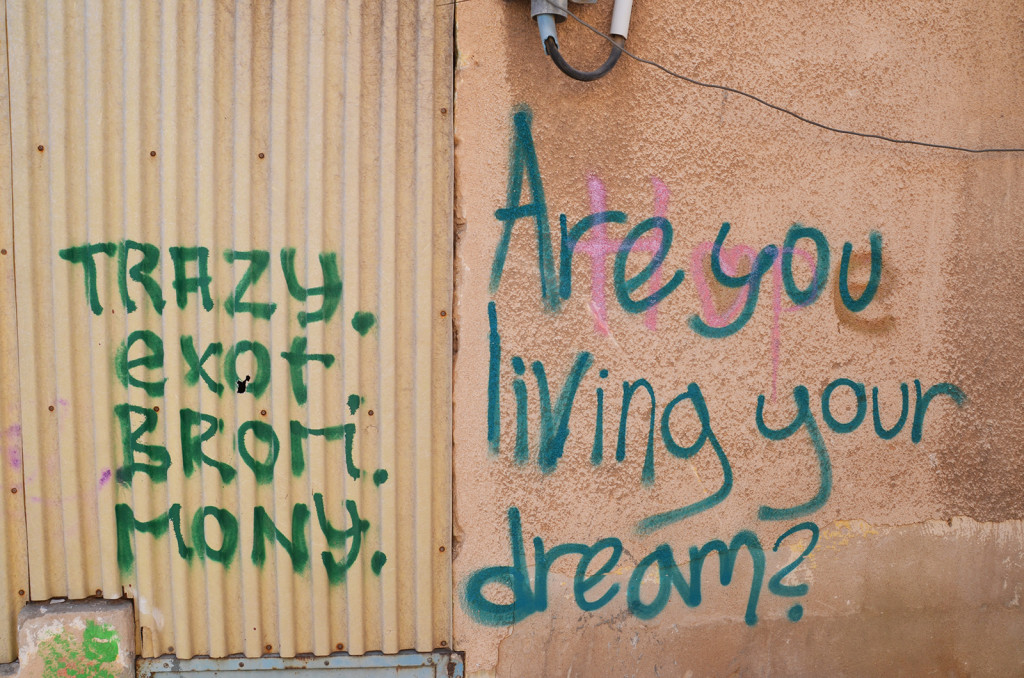 TRAZY.
exot.
BROM.
MONY.
Are you
living your
dream?